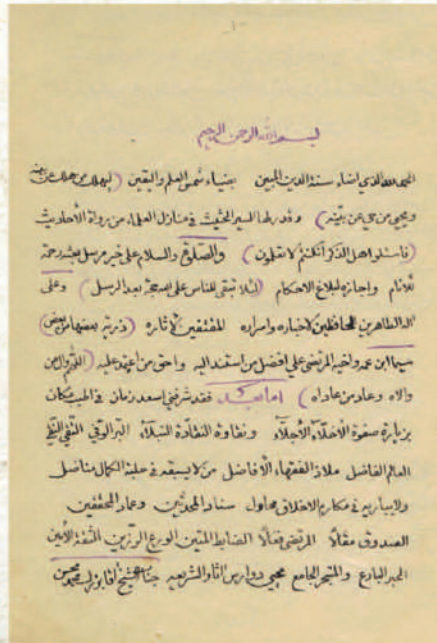 -١-
بسم الله الرحمن الرحيم
الحمد لله الذي اضاء سنة الدين المبين بضياء شمس العلم واليقين (ليهلك من هلك عن بينة
ويحيى من حي عن بينة) وقدر لها السير الحثيث في منازل العلماء من رواة الأحاديث
(فاسئلوا اهل الذكر ان كنتم لا تعلمون) والصلوة والسلام على خير مرسل بعثه رحمة
للانام واجازه لبلاغ الاحكام (لئلا تبقى للناس على الله حجة بعد الرسل) وعلى
آله الطاهرين الحافظين لاخباره واسراره المقتفين لآثاره (ذرية بعضها من بعض)
سيما ابن عمه واخيه المرتضى علي افضل من استند اليه واحق من اعتمد عليه (اللهم وال من
والاه وعاد من عاداه) اما بعد فقد شرفني اسعد زمان في اطيب مكان
بزيارة صفوة الأخلاء الأجلاء ونقاوة النقادة النبلاء البر الوفي التقي النقي
العالم الفاضل ملاذ الفقهاء الأفاضل من لا يسبقه في حلبة الكمال مناضل
ولا يباريه في مكارم الاخلاق مساجل سناد المحدثين وعماد المحققين
الصدوق مقالا المرتضى فعالا الضابط المتين الورع الرزين الثقة الأمين
الحبر البارع والمتبحر الجامع محيي دوارس آثار الشريعه جناب الشيخ آقا بزرك محمد محسن